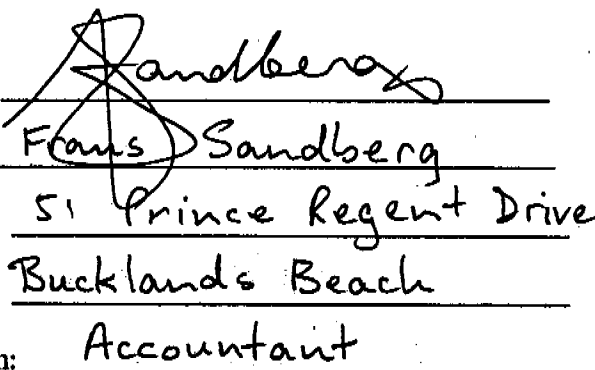 Sandberg
Frans Sandberg
51 Prince Regent Drive
Bucklands Beach
Accountant
n: